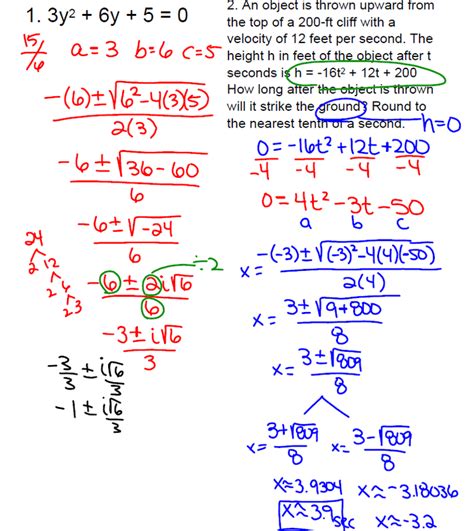 1. 3y² + 6y + 5 = 0
15/16
a = 3 b=6 c=5
-(6)±√6²-4(3)(5)
2(3)
-6±√36-60
6
-6±√-24
6
24
2 12
2 6
2 3
-6 ± 2i√6
6
÷2
-3± i√6
3
-3/3 ± i√6/3
-1 ± i√6/3
2. An object is thrown upward from
the top of a 200-ft cliff with a
velocity of 12 feet per second. The
height h in feet of the object after t
seconds is h = -16t² + 12t + 200
How long after the object is thrown
will it strike the ground? Round to
the nearest tenth of a second.
h=0
0=-16t²+12t+200
-4 -4 -4 -4
0=4t²-3t-50
a b c
x= -(-3)±√(-3)²-4(4)(-50)
2(4)
x= 3±√9+800
8
x= 3±√809
8
x= 3+√809 x= 3-√809
8 8
x≈3.9304 x≈-3.18036
x≈3.9 sec x≈-3.2